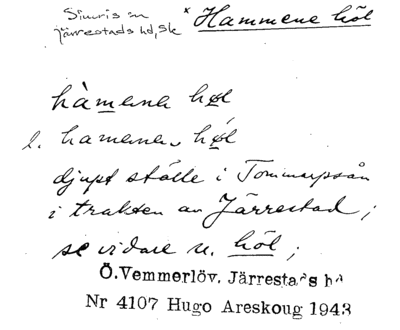 Simris sn
järrestads hd, Sk
* Hammene höl
hàmena høl
l. hamena høl
djupt ställe i Tommarpsån
i trakten av Järrestad;
se vidare u. höl;
Ö.Vemmerlöv. Järrestads hd
Nr 4107 Hugo Areskoug 1943